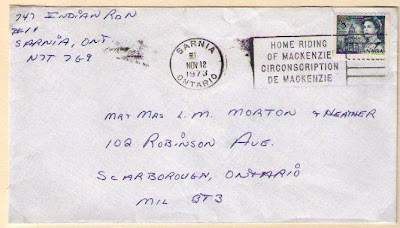 747 INDIAN RD N
#11
SARNIA, ONT
N7T 7G9
SARNIA
PI
NOV 12
1973
ONTARIO
HOME RIDING
OF MACKENZIE
CIRCONSCRIPTION
DE MACKENZIE
5
MR & MRS L.M. MORTON & HEATHER
102 ROBINSON AVE.
SCARBOROUGH, ONTARIO
M1L 3T3